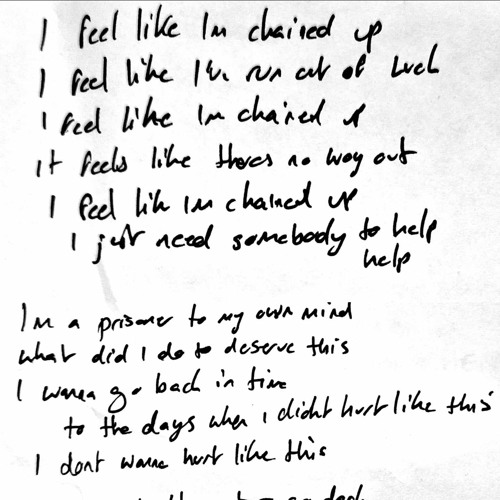 I feel like Im chained up
I feel like Ive run out of luck
I feel like Im chained up
it feels like theres no way out
I feel like Im chained up
I just need somebody to help
help
Im a prisoner to my own mind
what did I do to deserve this
I wanna go back in time
to the days when I didnt hurt like this
I dont wanna hurt like this